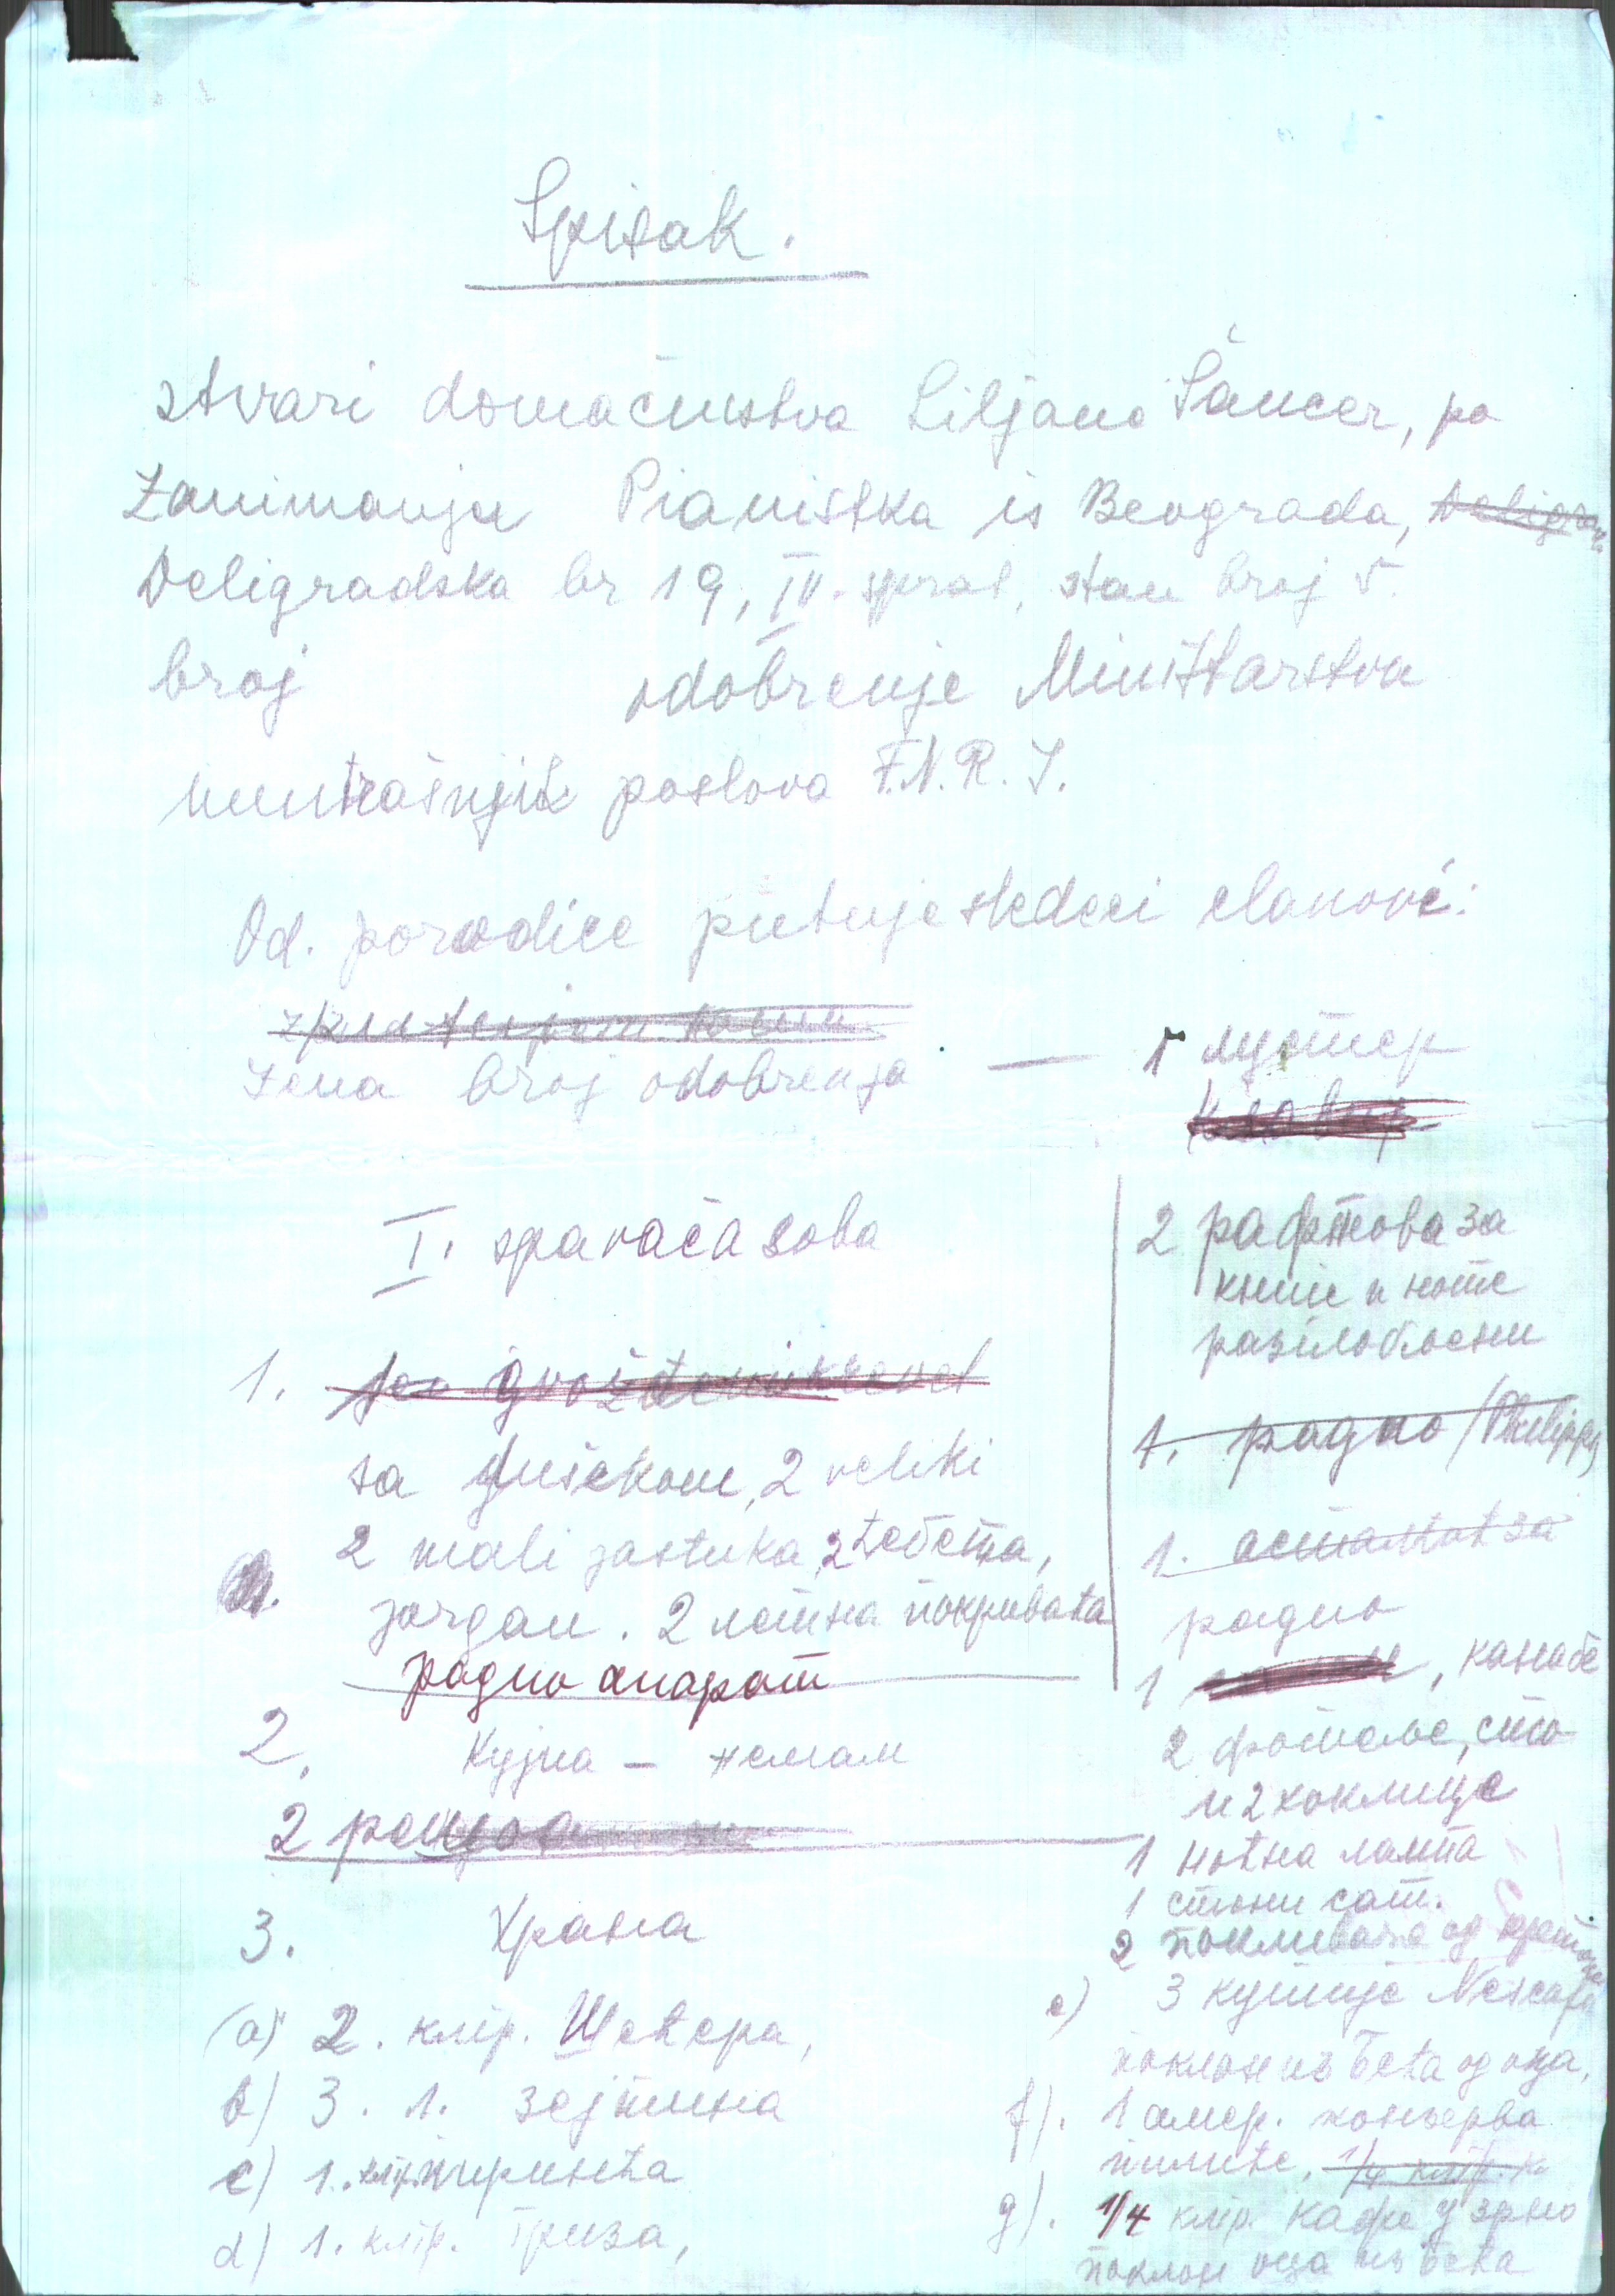 Spisak.
stvari domaćinstva Liljane Šäncer, po
zanimanja Pianistka is Beograda, Deligra
Deligradska br 19, IV. sprat, stan broj 5.
broj odobrenje Ministarstva
unutrašnjih poslova F.N.R.J.
Od. porodice putuje sledeci clanovi:
žena broj odobrenja — 1 лустер
клавир
I. spavaća soba
1.
sa dušekom, 2 veliki
2 mali jastuka, 2 ћебета,
jorgan. 2 летна покривача
радио апарат
2. Кујна – немам
2
3. Храна
a) 2. клгр. Шећера,
b) 3. л. зејтина
c) 1. клгр. пиринча
d) 1. клгр. гриза,
2 рафтова за
књиге и ноте
разглобљени
1. радио (Philipps)
1. астал за
радио
1 , канабе
2 фотеље, сто
и 2 хоклице
1 ноћна лампа
1 стони сат.
2 покривача од кретона
e) 3 кутије Nescafe
поклон из Беча од оца,
f). 1 амер. конзерва
пилиће, 1/4 клгр. к
g). 1/4 клгр. кафе у зрно
поклон оца из Беча